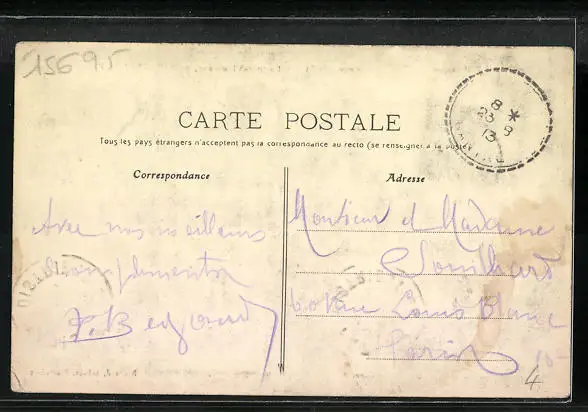 15695
CARTE POSTALE
Tous les pays étrangers n'acceptent pas la correspondance au recto (se renseigner à la poste)
Correspondance
Adresse
8 *
23 8
13
Avec nos meilleurs
compliments
Monsieur et Madame
rue Louis Blanc
Paris 10
4